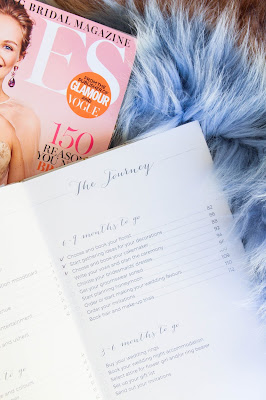 G BRIDAL MAGAZINE
ES
GLAMOUR
VOGUE
150
REASONS
YOU
The Journey
6-9 months to go
Choose and book your florist 82
Start gathering ideas for your decorations
Choose and book your cakemaker
Write your vows and plan the ceremony
Choose your bridesmaids' dresses
Get your groomswear sorted
Start planning honeymoon
Order or start making your wedding favours
Order your invitations
Book hair and make-up trials
3-6 months to go
Buy your wedding rings
Book your wedding night accommodation
Select attire for flower girl and/or ring bearer
Set up your gift list
Send out your invitations
to go